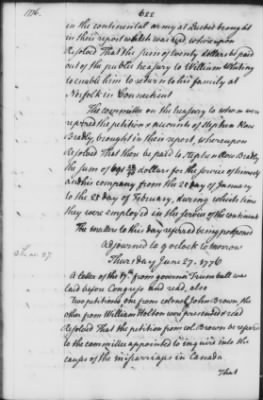 1776. 622
in the continental army at Quebec brought
in their report which was read, whereupon
Resolved That the sum of twenty dollars be paid
out of the public treasury to William Whiting
to enable him to return to his family at
Norfolk in Connecticut
The committee on the treasury to whom were
referred the petition & accounts of Stephen Row
Bradly, brought in their report, whereupon
Resolved That there be paid to Stephen Row Bradly
the sum of dollars for the service of himself
and his company, from the 25 day of January
to the 25 day of February, during which time
they were employed in the service of the continent
The matters to this day referred being postponed
Adjourned to 9 oclock to morrow
June 27
Thursday June 27. 1776
A letter of the from governor Trumbull was
laid before Congress and read, also
Two petitions, one from colonel John Brown, the
other from William Holton were presented & read
Resolved That the petition from col. Brown be referred
to the committee appointed to inquire into the
causes of the miscarriages in Canada.
That